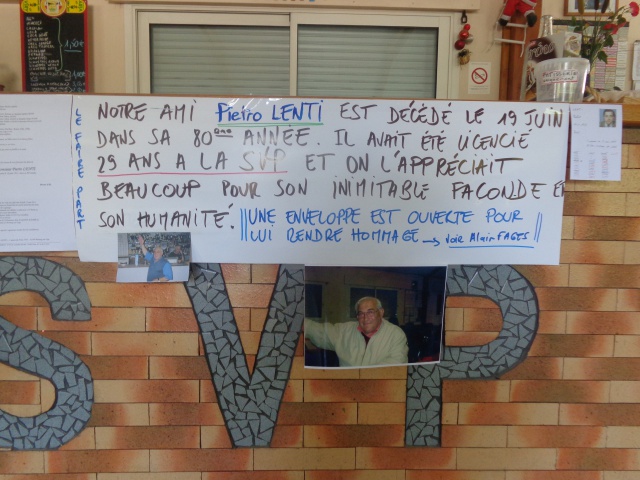 LE FAIRE PART
NOTRE AMI Pietro LENTI EST DÉCÉDÉ LE 19 JUIN
DANS SA 80ème ANNÉE. IL AVAIT ÉTÉ LICENCIÉ
29 ANS A LA SVP ET ON L'APPRÉCIAIT
BEAUCOUP POUR SON INIMITABLE FACONDE ET
SON HUMANITÉ. UNE ENVELOPPE EST OUVERTE POUR
LUI RENDRE HOMMAGE → voir Alain FAGES
SVP